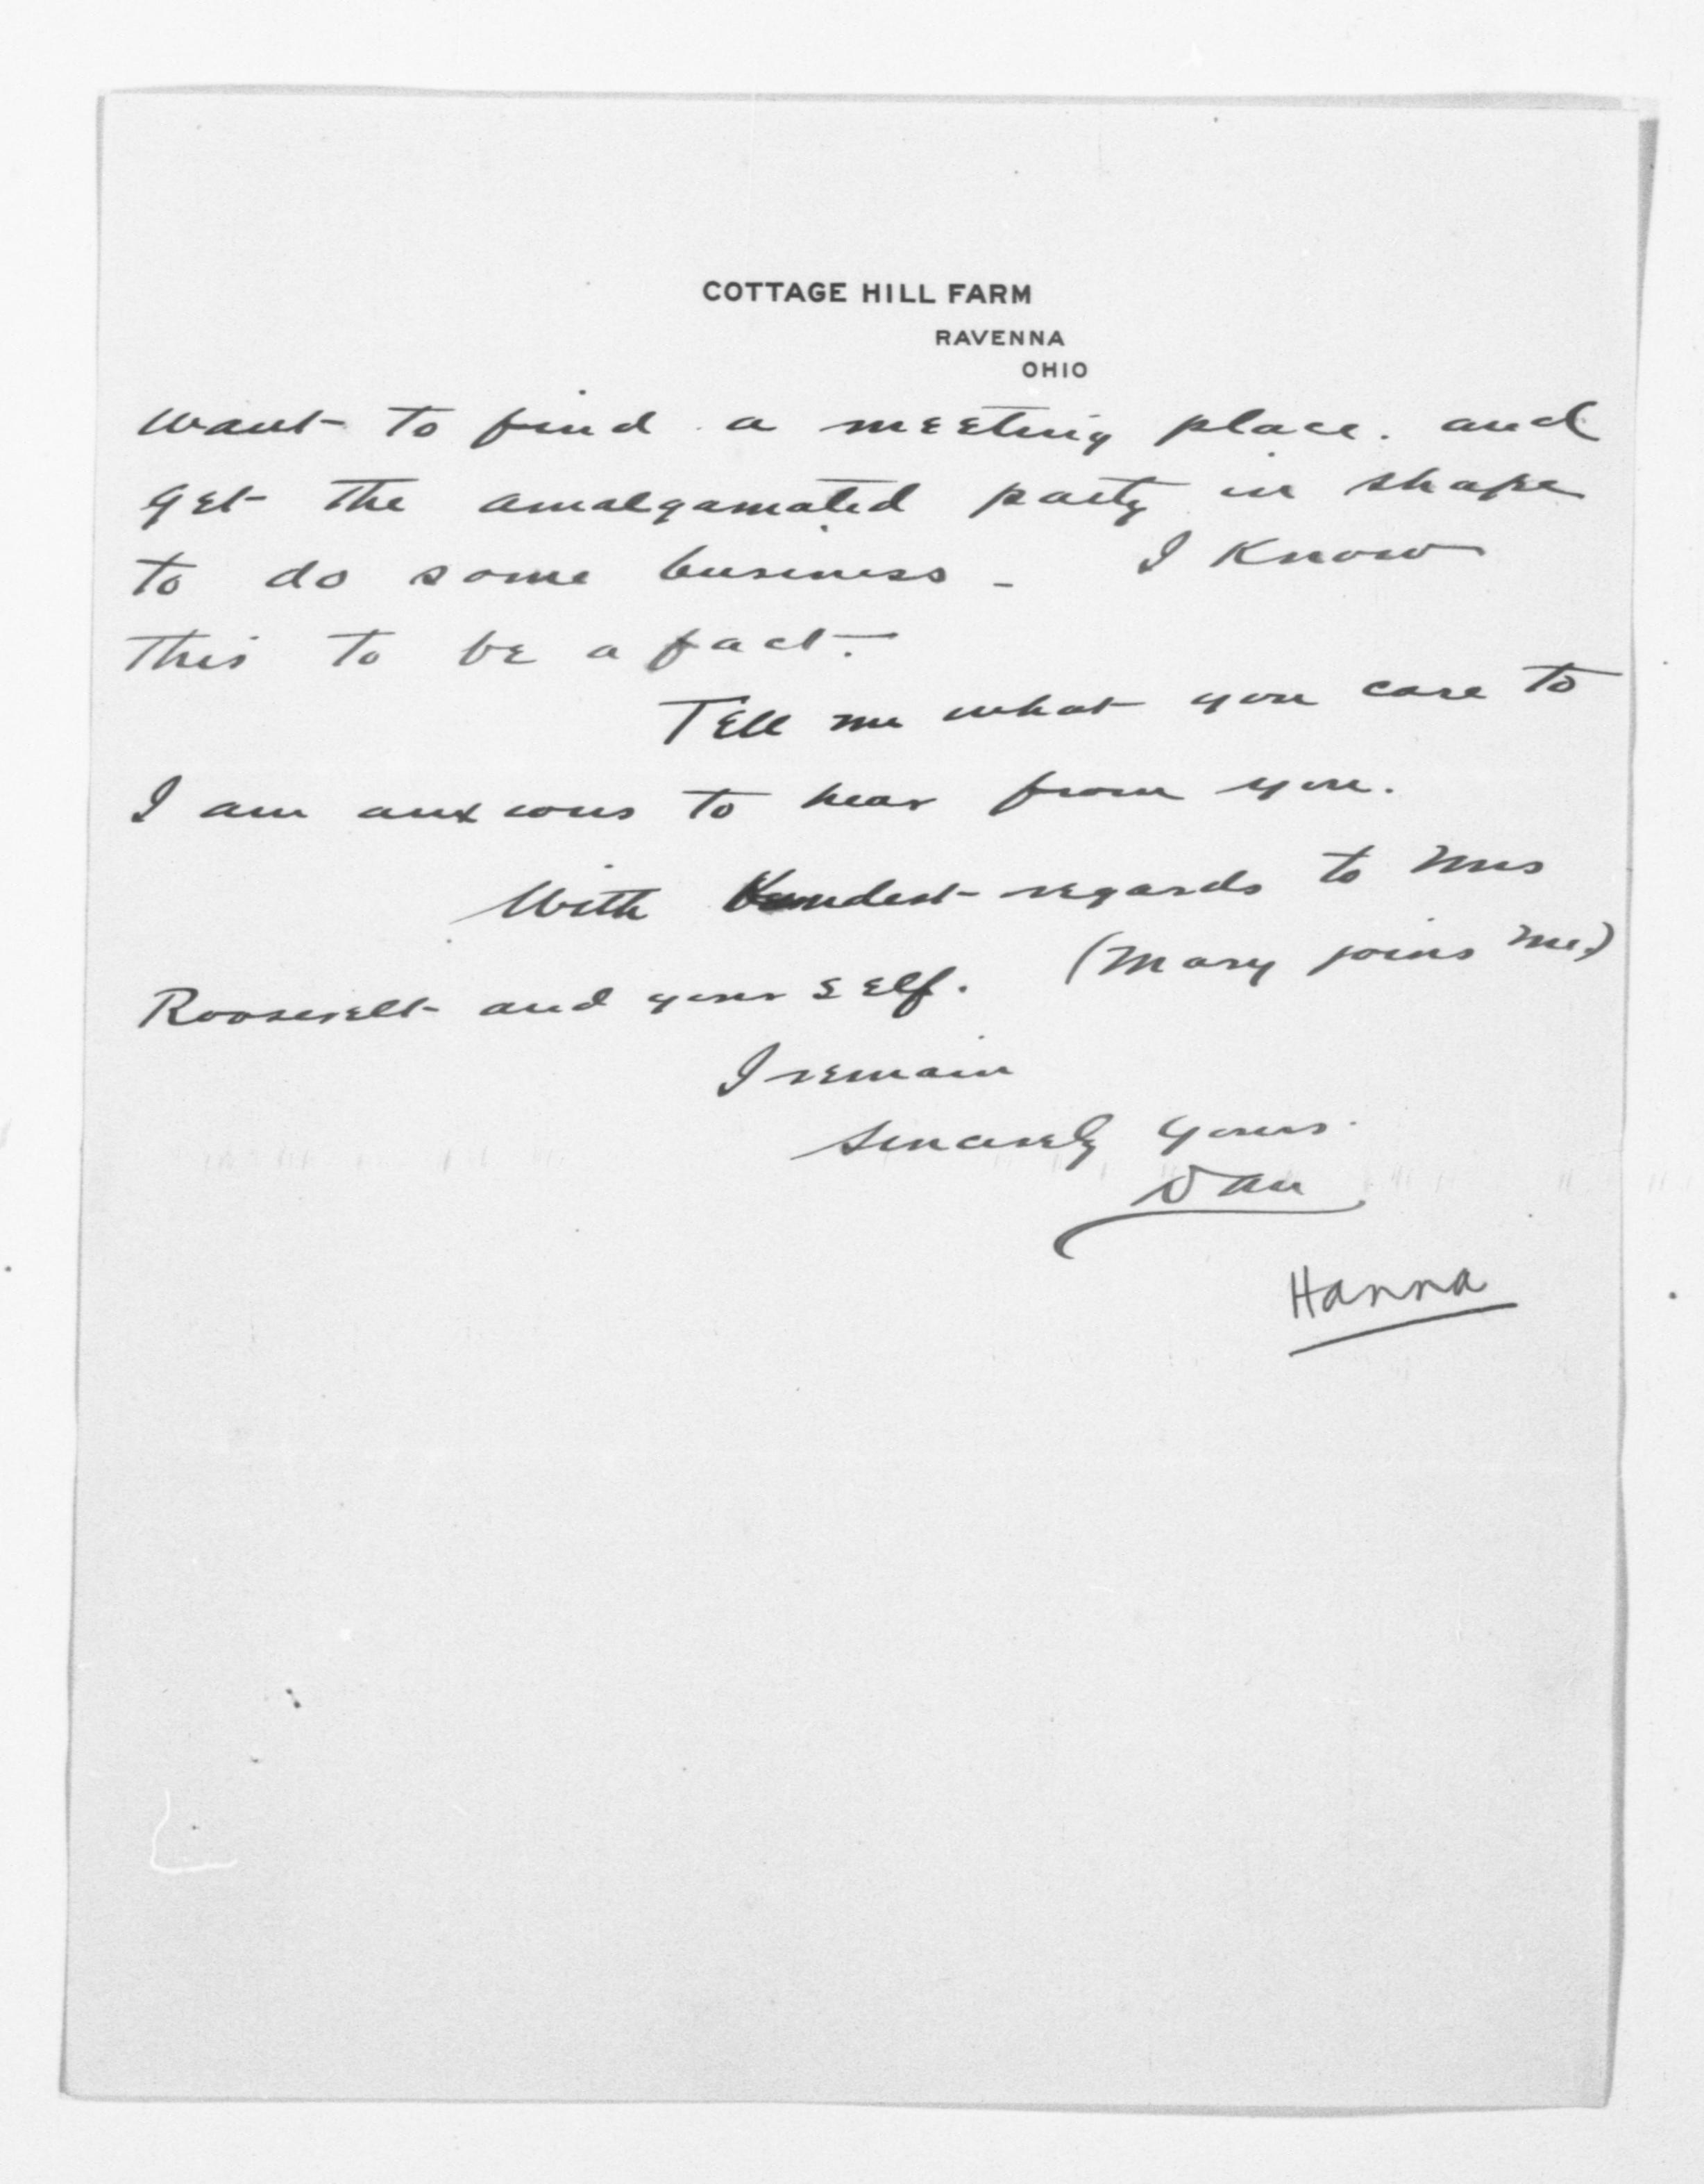 COTTAGE HILL FARM
RAVENNA
OHIO
want to find a meeting place. and
get the amalgamated party in shape
to do some business - I know
this to be a fact.
Tell me what you care to
I am anxious to hear from you.
With Kindest regards to Mrs
Roosevelt and yourself. (Mary joins me)
I remain
Sincerely yours.
Dan
Hanna